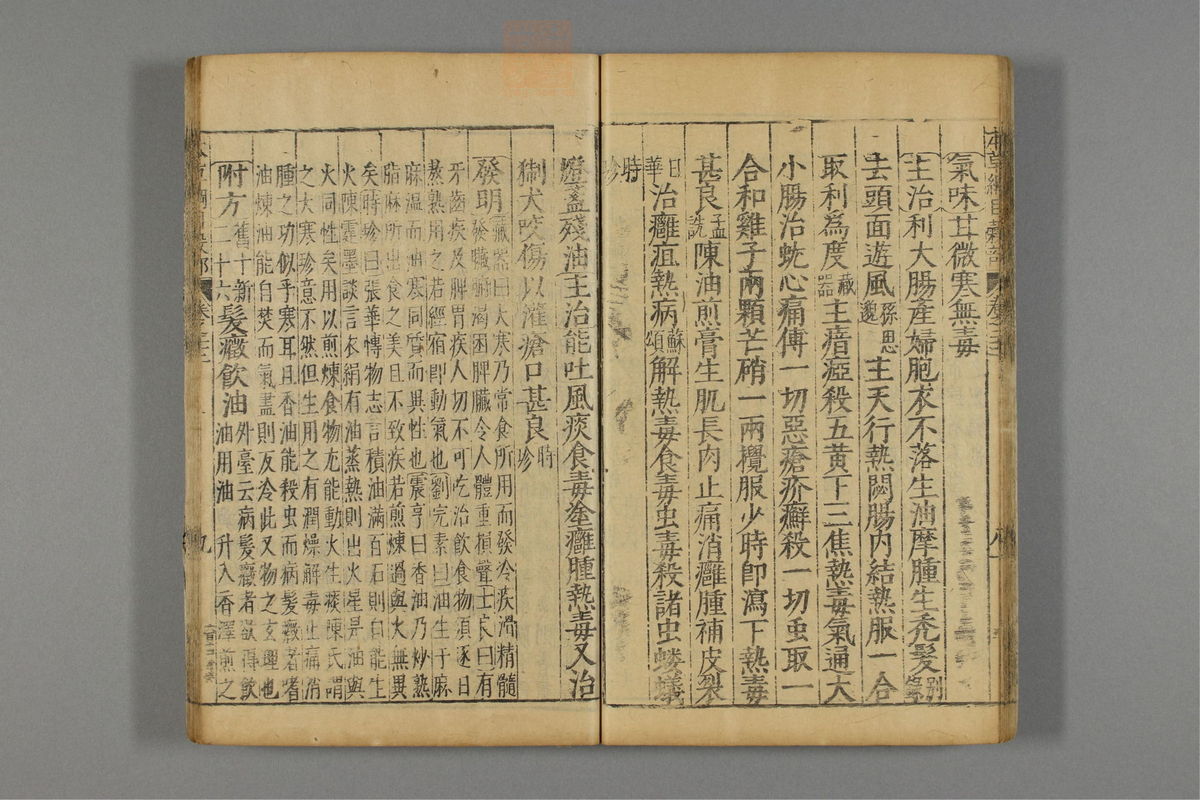 氣味甘微寒無毒
主治利大腸產婦胞衣不落生油摩腫生禿髮別錄
去頭面遊風孫思邈主天行熱閟腸內結熱服一合
取利為度藏器主瘖瘂殺五黃下三焦熱毒氣通大
小腸治蚘心痛傅一切惡瘡疥癬殺一切虫取一
合和雞子兩顆芒硝一兩攪服少時即瀉下熱毒
甚良孟詵陳油煎膏生肌長肉止痛消癰腫補皮裂
日華治癰疽熱病蘇頌解熱毒食毒虫毒殺諸虫螻蟻
時珍
燈盞殘油主治能吐風痰食毒塗癰腫熱毒又治
猘犬咬傷以灌瘡口甚良時珍
發明藏器曰大寒乃常食所用而發冷疾滑精髓
發臟腑渴困脾臟令人體重損聲士良曰有
牙齒疾及脾胃疾人切不可吃治飲食物須逐日
熬熟用之若經宿即動氣也劉完素曰油生于麻
麻溫而油寒同質而異性也震亨曰香油乃炒熟
脂麻所出食之美且不致疾若煎煉過與火無異
矣時珍曰張華愽物志言積油滿百石則自能生
火陳霆墨談言衣絹有油蒸熱則出火星是油與
火同性矣用以煎煉食物尤能動火生痰陳氏謂
之大寒珍意不然但生用之有潤燥解毒止痛消
腫之功似乎寒耳且香油能殺虫而病髮癥者嗜
油煉油能自焚而氣盡則反冷此又物之玄理也
附方舊十新二十六髮癥飲油外臺云病髮癥者欲得飲
油用油一升入香澤煎之
本草綱目穀部 卷之二十二 八
本草綱目穀部 卷之二十二 九